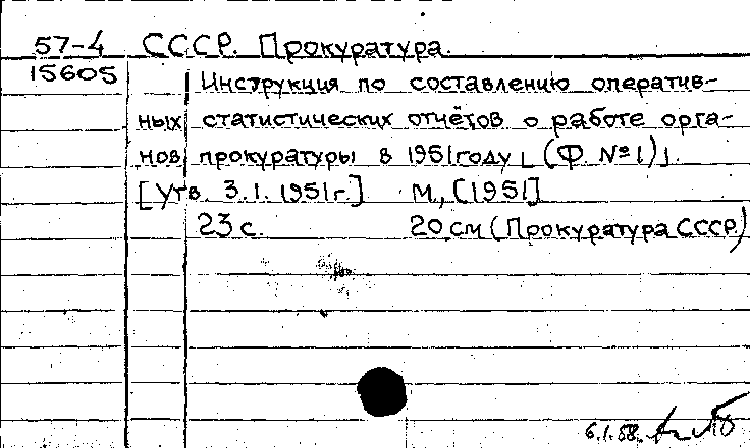 57-4 СССР. Прокуратура.
15605 Инструкция по составлению оператив-
ных статистических отчётов о работе орга-
нов прокуратуры в 1951 году [(Ф. №1)].
[Утв. 3.1.1951г.] М., [1951]
23 с. 20 см (Прокуратура СССР)
6.1.58.